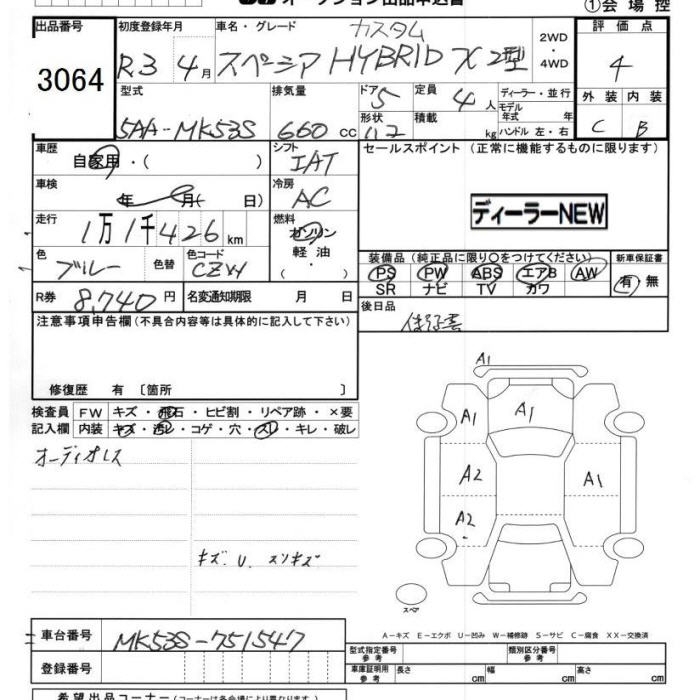 オークション出品申込書
①会場控
出品番号
3064
初度登録年月
R3 4月
車名・グレード
カスタム
スペーシア HYBRID X 2型
2WD
・
4WD
評価点
4
外装 内装
C B
型式
5AA-MK53S
排気量
660 cc
ドア 5
形状
定員 4人
積載 kg
ディーラー・並行
モデル
年式 年
ハンドル 左・右
車歴
自家用・( )
シフト
IAT
車検
年 月( 日)
冷房
AC
走行
1万1千426km
燃料
ガソリン
軽油
・
( )
色
ブルー
色替
色コード
CZW
R券 8,740円
名変通知期限 月 日
セールスポイント (正常に機能するものに限ります)
ディーラーNEW
装備品 (純正品に限り○をつけてください)
PS PW ABS エアB AW
SR ナビ TV カワ
新車保証書
有・無
後日品
保証書
注意事項申告欄(不具合内容等は具体的に記入して下さい)
修復歴 有〔箇所 〕
検査員
記入欄
FW キズ・飛石・ヒビ割・リペア跡・×要
内装 キズ・汚レ・コゲ・穴・スレ・キレ・破レ
オーディオレス
キズ、U、スリキズ
A1
A1
A1
A2
A1
A2
スペア
A-キズ E-エクボ U-凹み W-補修跡 S-サビ C-腐食 XX-交換済
車台番号
MK53S-751547
登録番号
型式指定番号
参考
類別区分番号
参考
車庫証明用
参考
長さ cm
幅 cm
高さ cm
希望出品コーナー(コーナーは各会場により異なります)